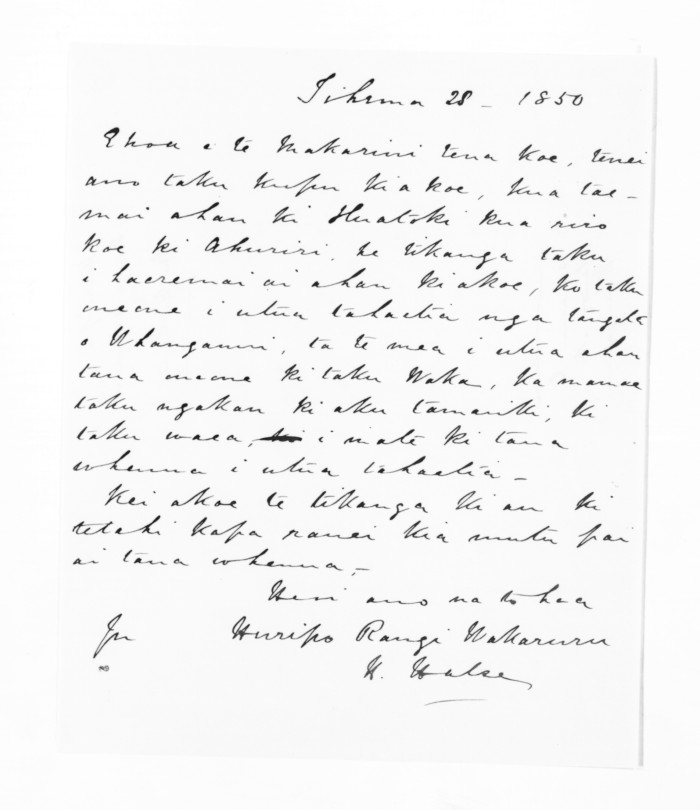 Tihema 28 - 1850
Ehoa e te Makarini tena koe, tenei
ano taku kupu kia koe, kua tae-
mai ahau ki Huatoki kua riro
koe ki Ahuriri, he tikanga taku
i haeremai ai ahau ki akoe, ko taku
oneone i utua tahaetia nga tangata
o Whanganui, ta te mea i utua ahau
tana oneone ki taku Waka, ka mamae
taku ngakau ki aku tamariki, ki
taku waea, i mate ki tana
whenua i utua tahaetia -
Kei akoe te tikanga ki au ki
tetahi kapa ranei kia mutu pai
ai tana whenua, -
Heoi ano na to hoa
Huripo Rangi Wakaruru
H. Halse